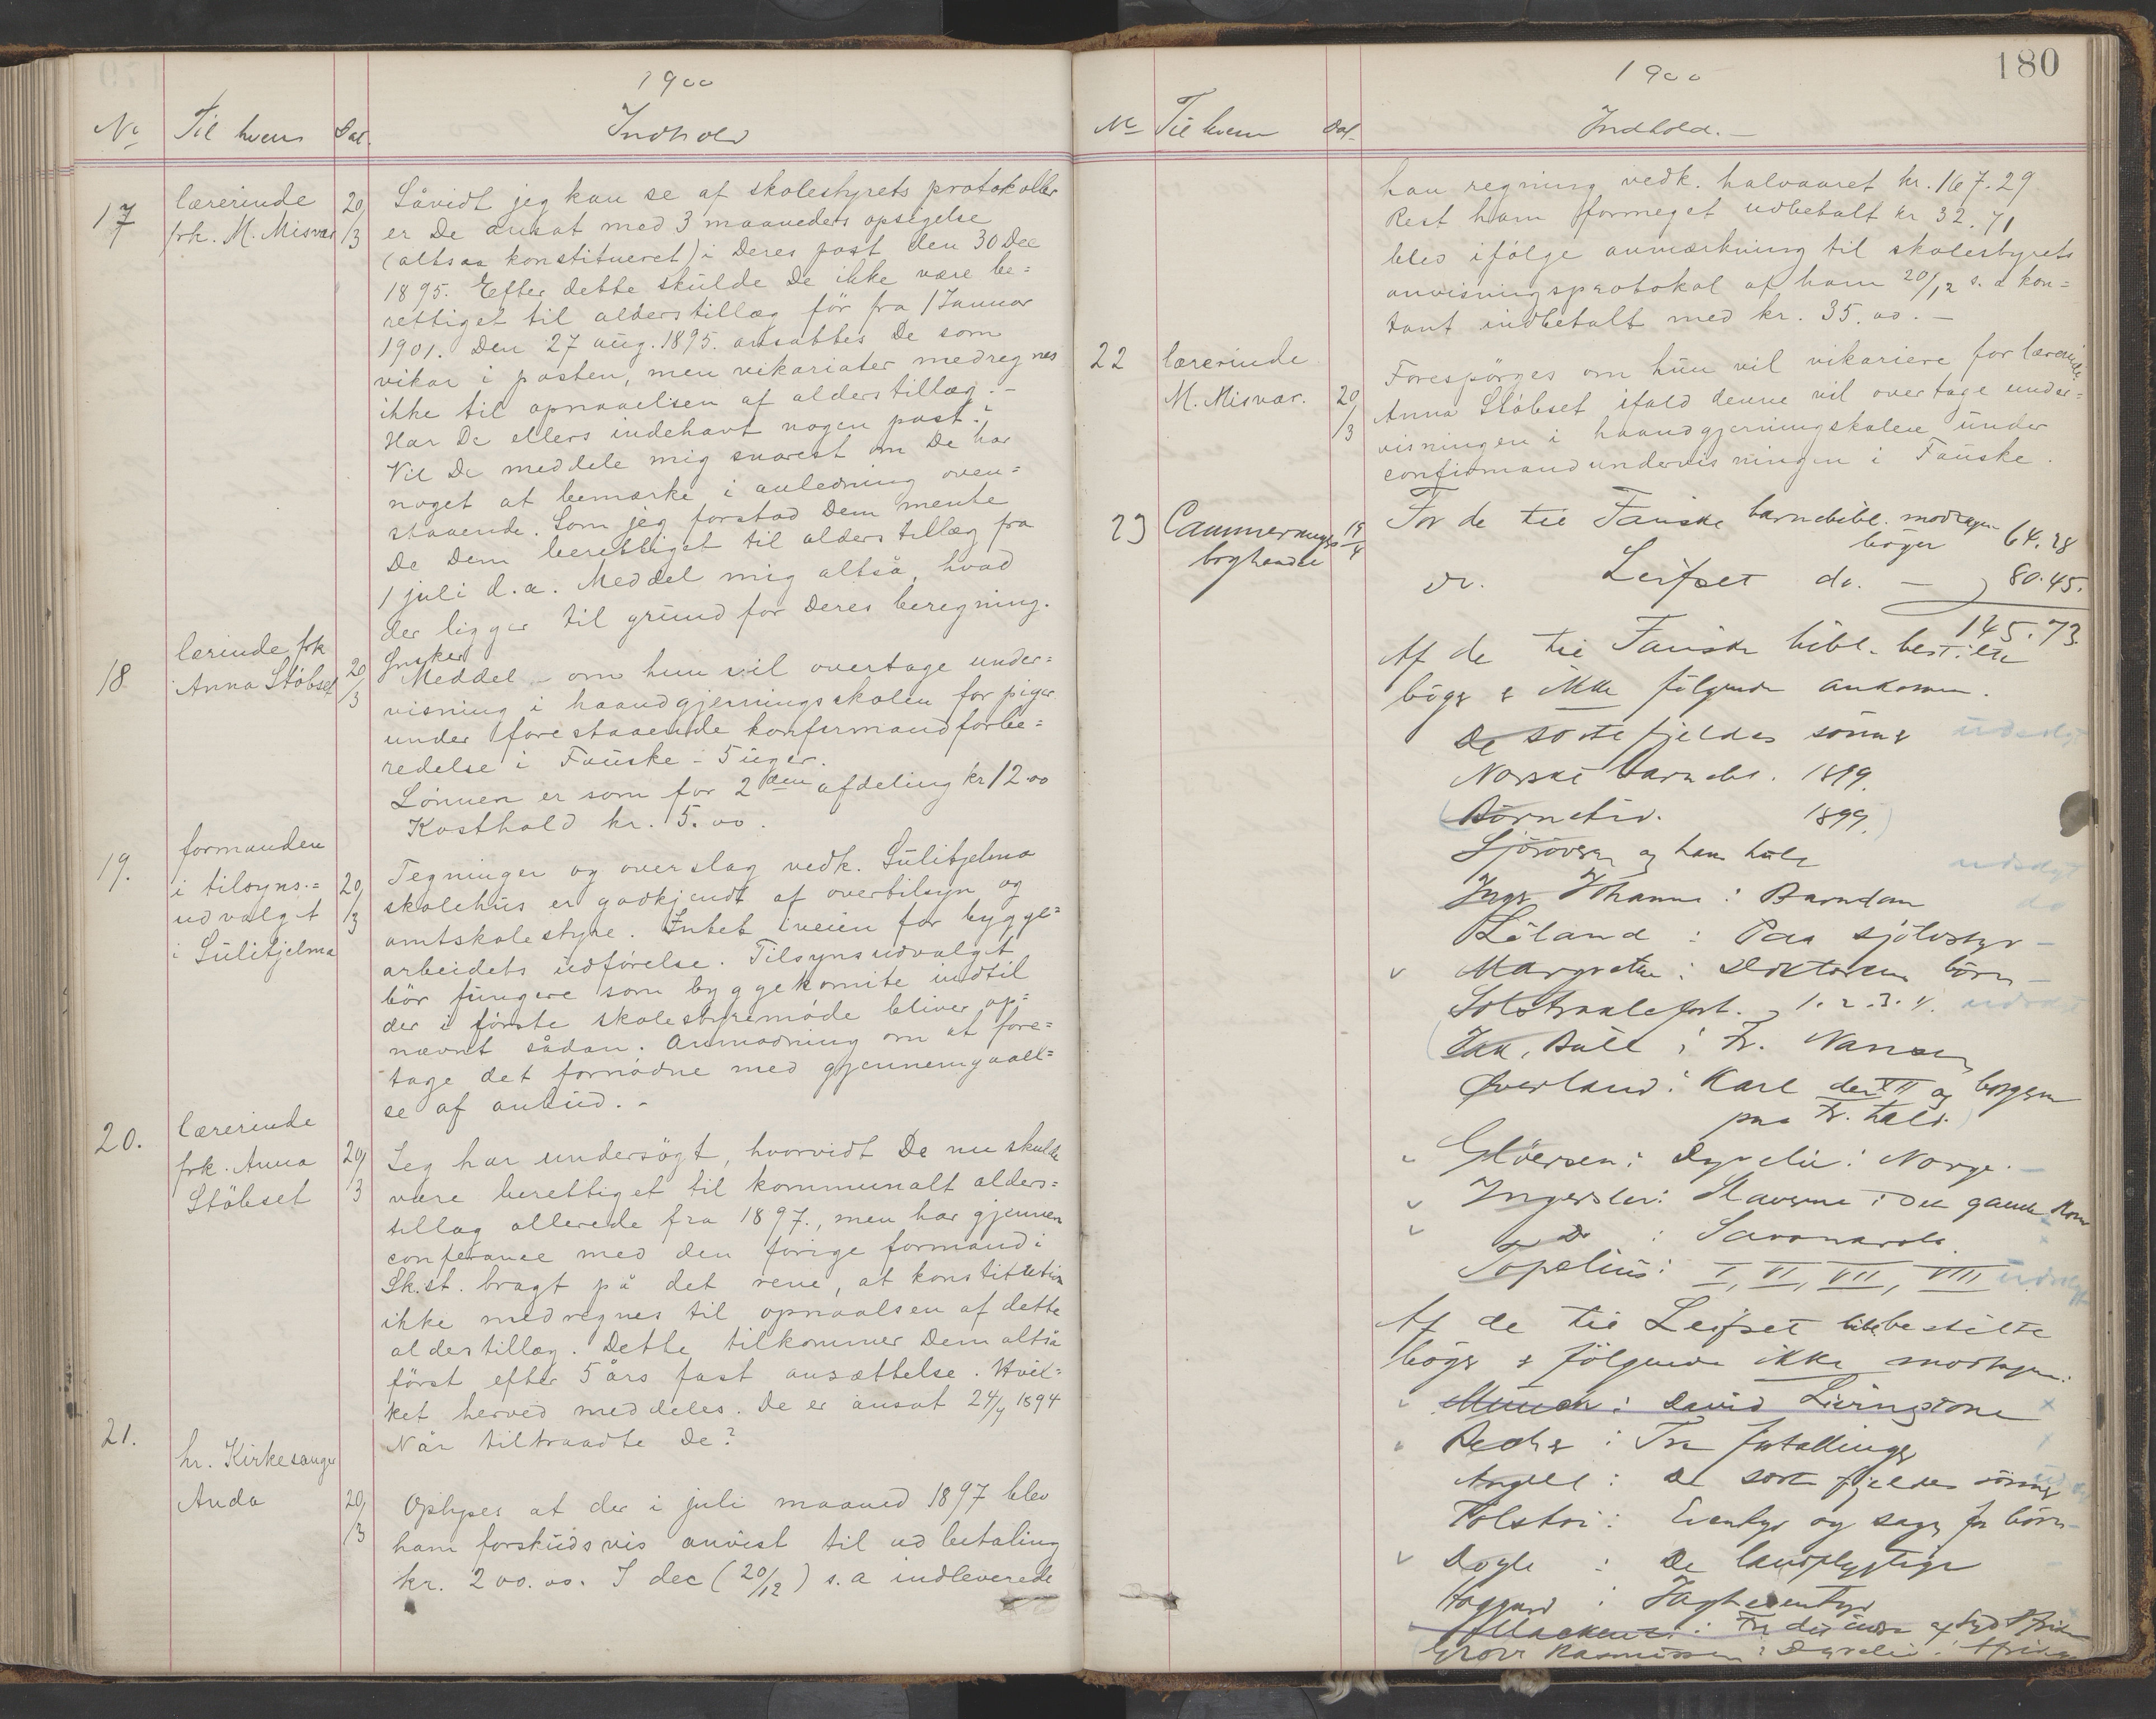 1900
No Til hvem Dat. Indhold
17 lærerinde frk. M. Misvær 20/3
Såvidt jeg kan se af skolestyrets protokoller
er De ansat med 3 maaneders opsigelse
(altsaa konstitueret) i Deres post den 30 Dec
1895. Efter dette skulde De ikke være be=
rettiget til alderstillæg før fra 1 Januar
1901. Den 27 aug. 1895. ansattes De som
vikar i posten, men vikariater medregnes
ikke til opnaaelsen af alderstillæg. –
Har De ellers indehavt nogen post?
Vil De meddele mig snarest om De har
noget at bemærke i anledning oven=
staaende. Som jeg forstod Dem mente
De Dem berettiget til alderstillæg fra
1 juli d.a. Meddel mig altså, hvad
der ligger til grund for Deres beregning.
18 lærinde frk Anna Støbset 20/3
Ønsker
Meddel – om hun vil overtage under=
visning i haandgjerningsskolen for piger
under forestaaende konfirmandforbe=
redelse i Fauske – 5 uger.
Lønnen er som for 2den afdeling kr 12.00
Kosthold kr. 5.00.
19. formanden i tilsyns.= udvalget i Sulitjelma 20/3
Tegninger og overslag vedk. Sulitjelma
skolehus er godkjendt af overtilsyn og
amtskolestyre. Intet iveien for bygge=
arbeidets udførelse. Tilsynsudvalget
bør fungere som byggekomite indtil
der i første skolestyremøde bliver op=
nævnt sådan. Anmodning om at fore=
tage det fornødne med gjennemgaael=
se af anbud. –
20. lærerinde frk. Anna Støbset 20/3
Jeg har undersøgt, hvorvidt De nu skulde
være berettiget til kommunalt alders=
tillæg allerede fra 1897., men har gjennem
conferance med den forige formand i
Sk.st. bragt på det rene, at konstitution
ikke medregnes til opnaalsen af dette
alderstillæg. Dette tilkommer Dem altså
først efter 5 års fast ansættelse. Hvil=
ket herved meddeles. De er ansat 24/4 1894
Når tiltraadte De?
21. hr. Kirkesanger Anda 20/3
Oplyses at der i juli maaned 1897 blev
ham forskudsvis anvist til udbetaling
kr. 200.00. I dec (20/12) s. a indleverede
180
1900
No Til hvem Dat. Indhold. –
han regning vedk. halvaaret kr. 167.29
Rest ham formeget udbetalt kr 32.71
blev ifølge anmærkning til skolestyrets
anvisningsprotokol af ham 20/12 s. a kon=
tant indbetalt med kr. 35.00. –
22 lærerinde M. Misvær. 20/3
Forespørges om hun vil vikariere for lærerinde
Anna Støbset ifald denne vil overtage under=
visningen i haandgjerningskolen under
confirmandundervisningen i Fauske.
23 Cammermeyers boghandel 19/4
For de til Fauske barnebibl. modtagne bøger 64.28
Do. Leifset do. – 80.45.
145.73
Af de til Fauske bibl. bestilte
bøger er ikke følgende ankomne.
De sorte fjeldes sønner udsolgt
Norske barnebl. 1899.
Børnetid. 1899.
Sjørøveren og hans hule udsolgt
Inger Johanne: Barndom do
Løland: Paa sjølvstyr –
v Margrethe: Doktorens børn –
Solstraalefort. 1. 2. 3. 4. udsolgt
Jak. Bull: Fr. Nansen
Øverland: Karl den XII og borgerne paa Fr. hald.
Gløersen: Dyreliv i Norge. –
v Ingerslev: Slaverne i det gamle Rom
v Do : Savonarola.
Topelius: I, VI, VII, VIII udsolgt
Af de til Leifset bibl. bestilte
bøger er følgende ikke modtagne.
Munch: David Livingstone x
: Tre fortællinger
Angell: De sorte fjeldes sønner
Tolstoi: Eventyr og sagn for børn
v Doyle : De landflygtige
Haggard : Jagteventyr
: Fra det indre af Syd Afrika
Grove Rasmussen: Dyreliv i Afrika